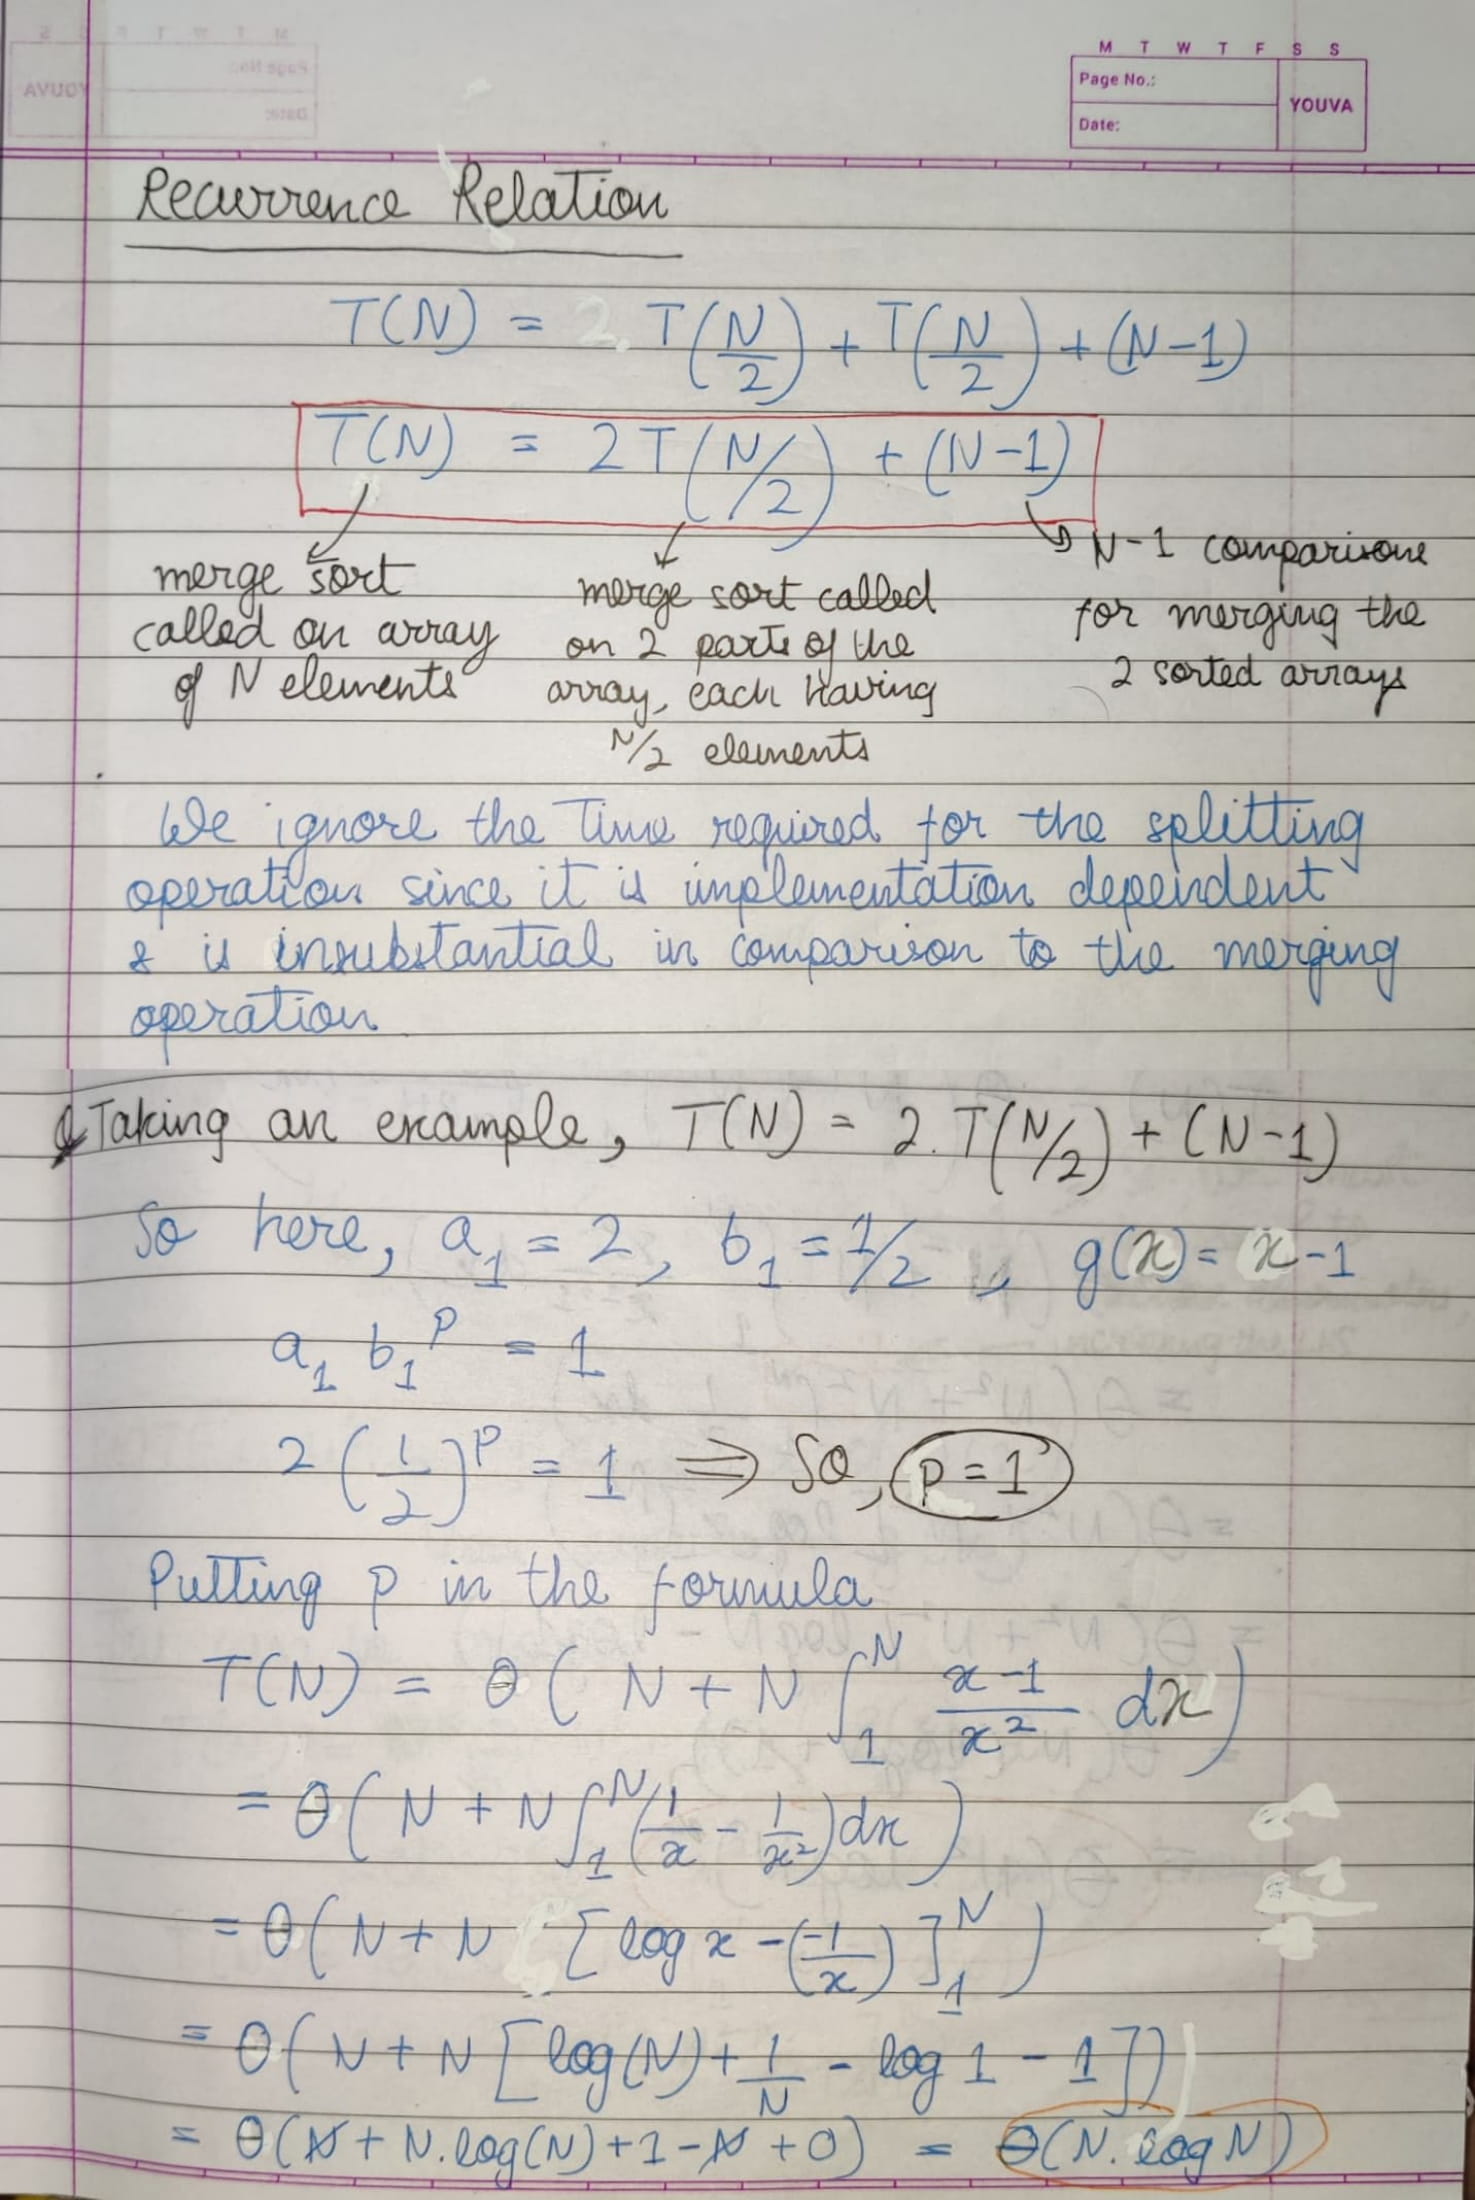 M T W T F S S
Page No.:
YOUVA
Date:
Recurrence Relation
T(N) = T(N/2) + T(N/2) + (N-1)
T(N) = 2T(N/2) + (N-1)
merge sort
called on array
of N elements
merge sort called
on 2 parts of the
array, each having
N/2 elements
N-1 comparisons
for merging the
2 sorted arrays
We ignore the time required for the splitting
operation since it is implementation dependent
& is insubstantial in comparison to the merging
operation
Taking an example, T(N) = 2.T(N/2) + (N-1)
So here, a₁ = 2, b₁ = 1/2, g(x) = x-1
a₁ b₁^p = 1
2 (1/2)^p = 1 ⇒ So, p = 1
Putting p in the formula
T(N) = θ( N + N ∫₁^N (x-1)/x² dx )
= θ( N + N ∫₁^N (1/x - 1/x²) dx )
= θ( N + N [ log x - (-1/x) ]₁^N )
= θ( N + N [ log(N) + 1/N - log 1 - 1 ])
= θ(N + N.log(N) + 1 - N + 0) = θ(N. log N)